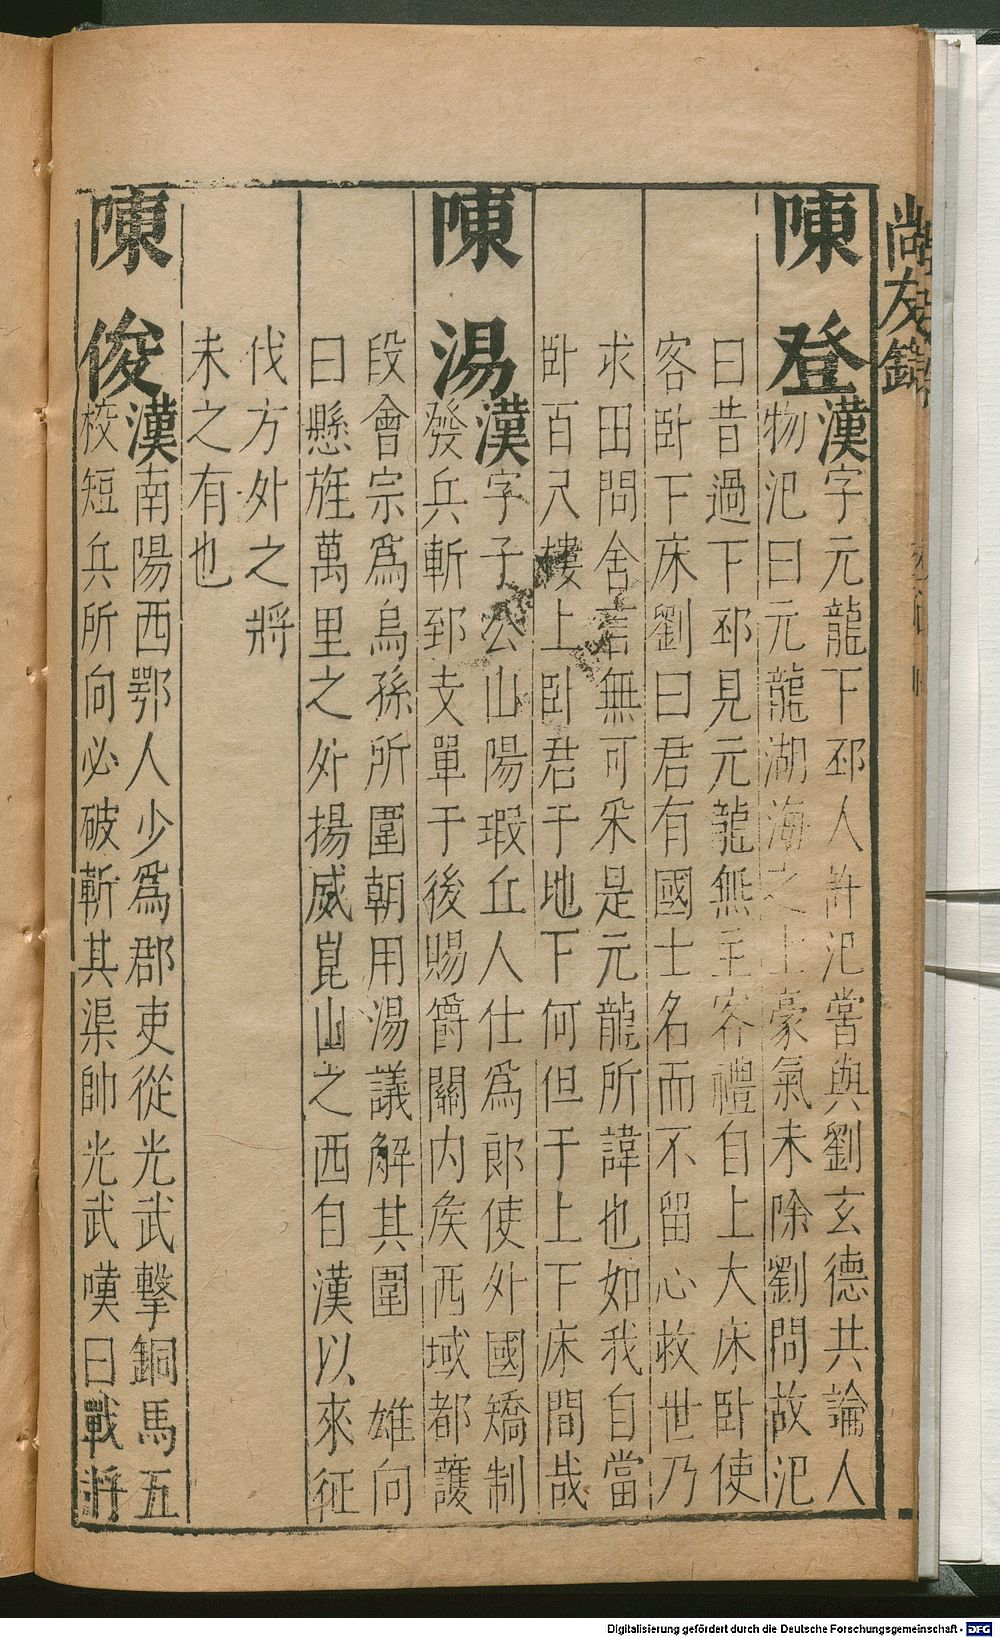 尚友錄
陳登
漢字元龍下邳人許汜嘗與劉玄德共論人
物汜曰元龍湖海之士豪氣未除劉問故汜
曰昔過下邳見元龍無主客禮自上大床臥使
客臥下床劉曰君有國士名而不留心救世乃
求田問舍言無可采是元龍所諱也如我自當
臥百尺樓上臥君于地下何但于上下床間哉
陳湯
漢字子公山陽瑕丘人仕爲郎使外國矯制
發兵斬郅支單于後賜爵關内矦西域都護
段會宗爲烏孫所圍朝用湯議解其圍 雄向
曰懸旌萬里之外揚威崑山之西自漢以來征
伐方外之將
未之有也
陳俊
漢南陽西鄂人少爲郡吏從光武擊銅馬五
校短兵所向必破斬其渠帥光武嘆曰戰將
Digitalisierung gefördert durch die Deutsche Forschungsgemeinschaft - DFG